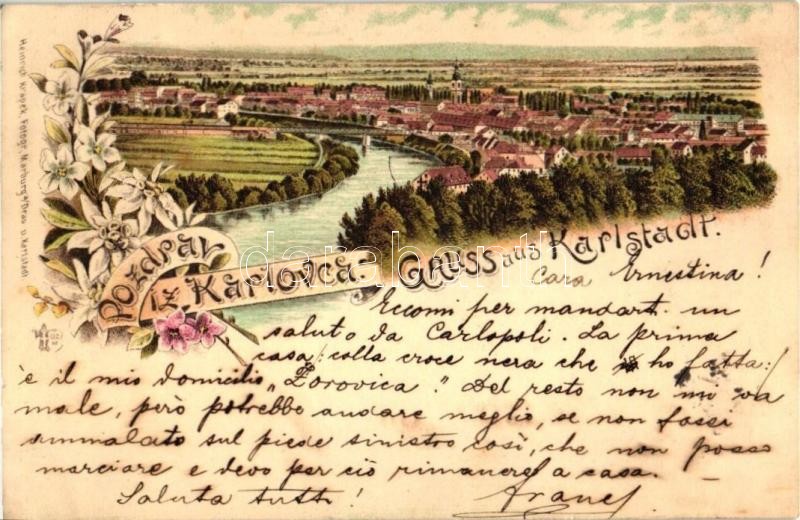 Heinrich Krapek, Fotogr. Marburg a/Drau u. Karlstadt
Pozdrav
iz Karlovca.
Gruss aus Karlstadt.
darabanth
Cara Ernestina!
Eccomi per mandarti un
saluto da Carlopoli. La prima
casa (colla croce nera che ho fatta:)
è il mio domicilio „Zorovica." Del resto non mi va
male, però potrebbe andare meglio, se non fossi
ammalato sul piede sinistro così, che non posso
marciare e devo per ciò rimanere a casa.
Saluta tutti!